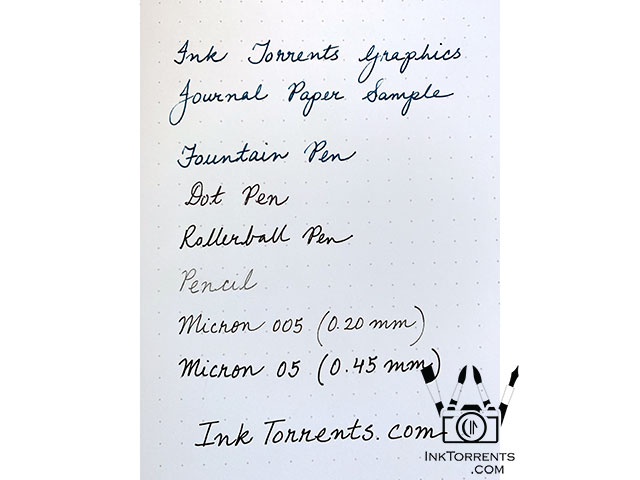 Ink Torrents Graphics
Journal Paper Sample
Fountain Pen
Dot Pen
Rollerball Pen
Pencil
Micron 005 (0.20 mm)
Micron 05 (0.45 mm)
Ink Torrents.com
INKTORRENTS
.COM